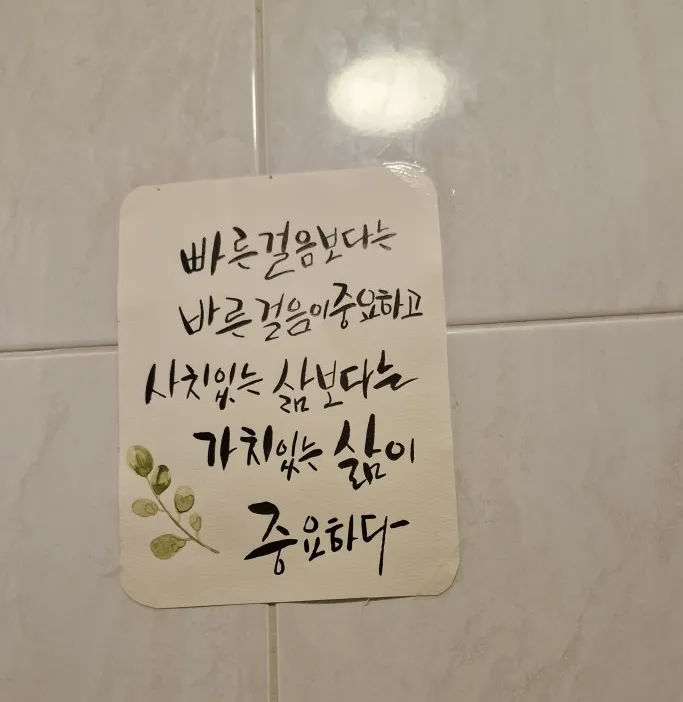 빠른걸음보다는
바른걸음이중요하고
사치있는 삶보다는
가치있는 삶이
중요하다